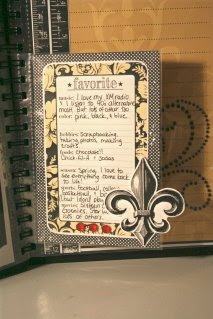 favorite
music: I love my XM radio
& I listen to 90s alternative
most. But lots of other too
color: pink, black, & blue.
hobbies: Scrapbooking,
taking photos, making
crafts
foods: chocolate!!
Chick-fil-A & sodas
season: Spring, I love to
see everything come back
to life!
sports: football,
basketball, &
(but I don't play
lots of others.